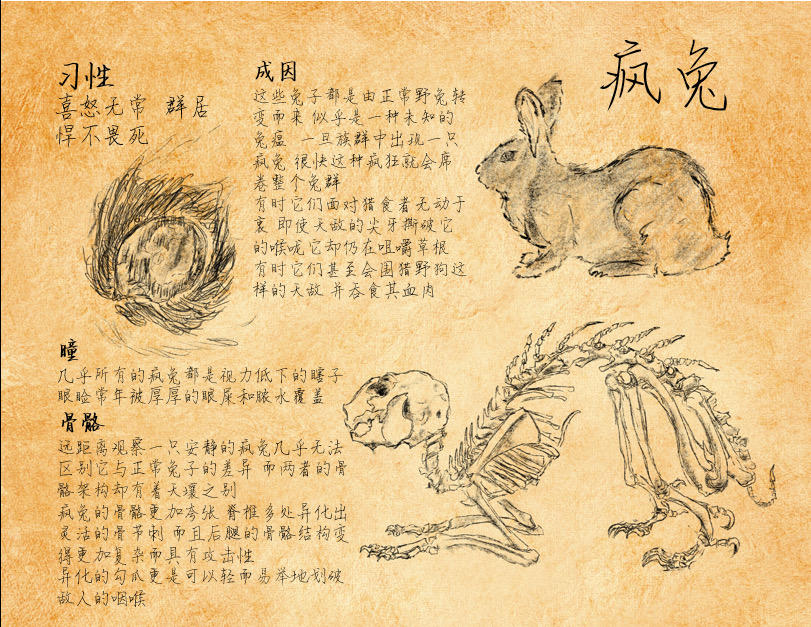 疯兔
习性
喜怒无常 群居
悍不畏死
成因
这些兔子都是由正常野兔转
变而来 似乎是一种未知的
兔瘟 一旦族群中出现一只
疯兔 很快这种疯狂就会席
卷整个兔群
有时它们面对猎食者无动于
衷 即使天敌的尖牙撕破它
的喉咙它却仍在咀嚼草根
有时它们甚至会围猎野狗这
样的天敌 并吞食其血肉
瞳
几乎所有的疯兔都是视力低下的瞎子
眼睑常年被厚厚的眼屎和脓水覆盖
骨骼
远距离观察一只安静的疯兔几乎无法
区别它与正常兔子的差异 而两者的骨
骼架构却有着天壤之别
疯兔的骨骼更加夸张 脊椎多处异化出
灵活的骨节刺 而且后腿的骨骼结构变
得更加复杂而具有攻击性
异化的勾爪更是可以轻而易举地划破
敌人的咽喉